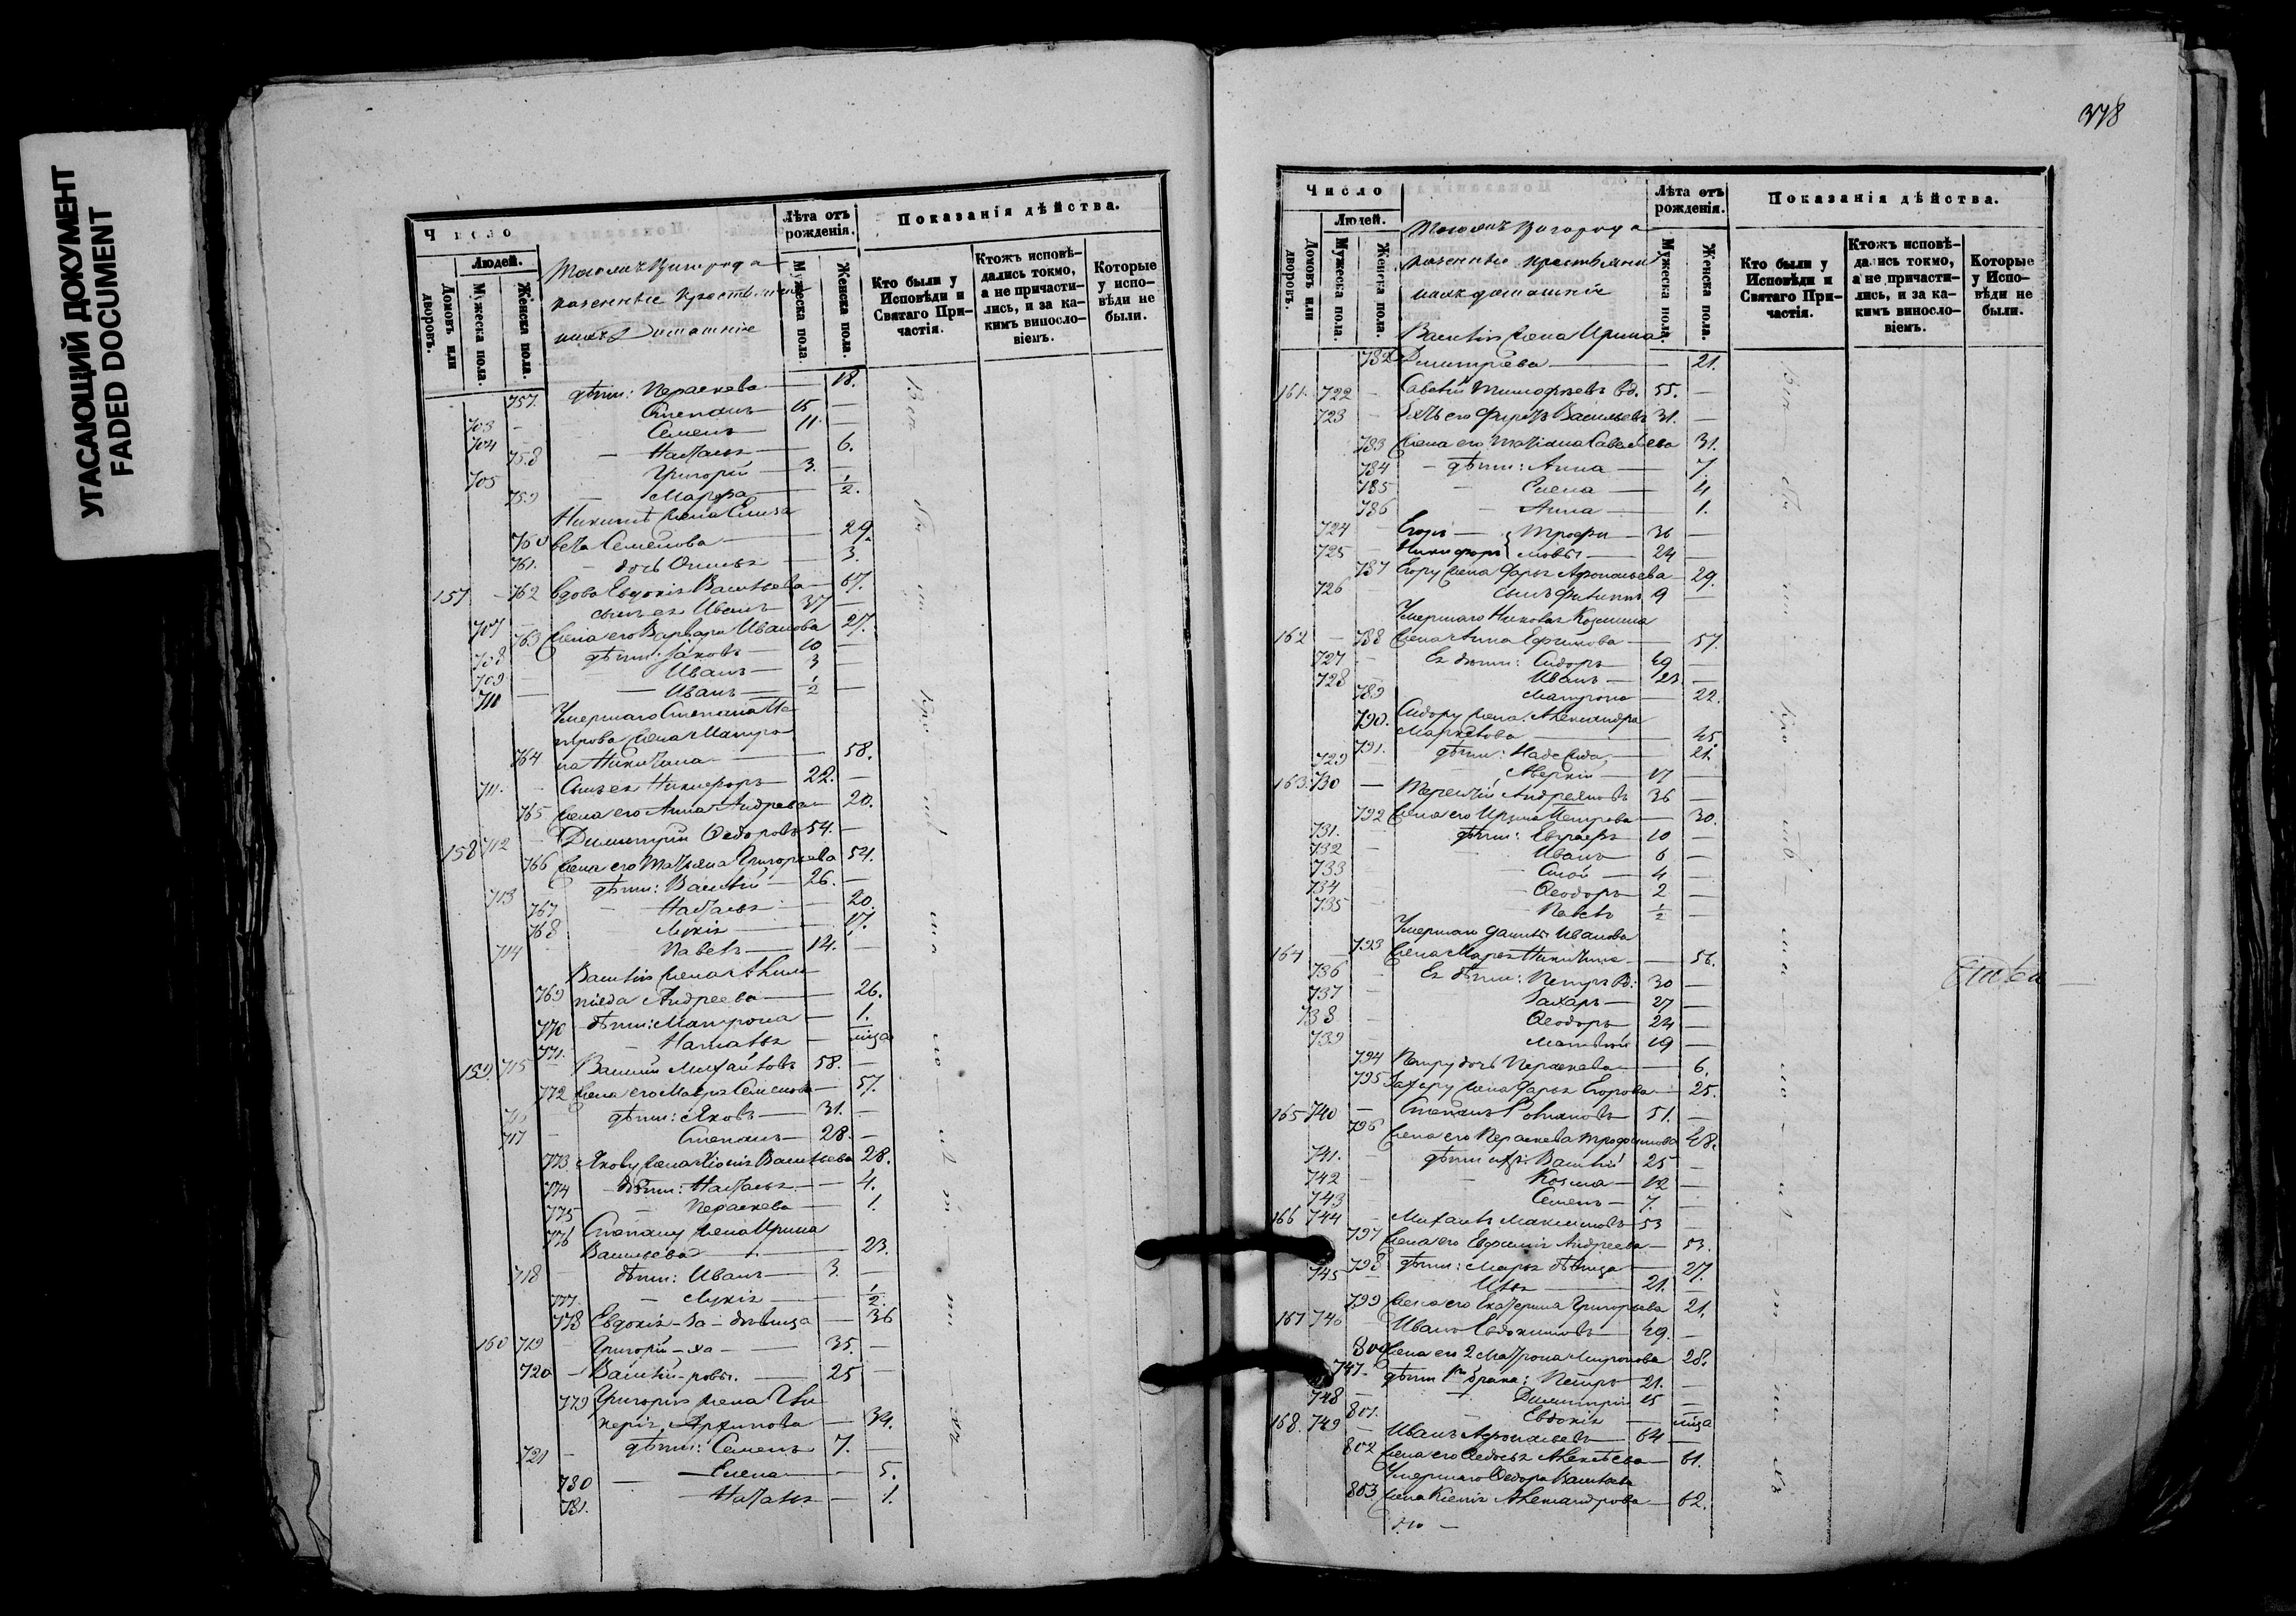 УГАСАЮЩИЙ ДОКУМЕНТ
FADED DOCUMENT
Число
Людей.
Домовъ или дворовъ.
Мужеска пола.
Женска пола.
казенные крестьяне
Домашніе
Лѣта отъ рожденія.
Мужеска пола.
Женска пола.
Показанія дѣйства.
Кто были у Исповѣди и Святаго Причастія.
Ктожъ исповѣдались токмо, а не причастились, и за какимъ винословіемъ.
Которые у исповѣди не были.
757. дѣти: Параскева — 18.
703 — Степанъ — 15 —
704 — Семенъ — 11. —
758 — Наталья — 6.
705 Григорій — 3. —
759 — Марѳа — 1/2.
Никиты жена Елиза
760 вета Семенова — 29.
761. — дочь — 3.
157 — 762 Вдова Евдокія Васильева — 67.
707 — сынъ ея Иванъ — 37 —
763 Жена его Варвара Иванова 27.
708 дѣти: Іаковъ — 10 —
709 — Иванъ — 3 —
710 — Иванъ — 1/2 —
Умершаго Степана Пе
трова жена Матро
764 на Никитина — 58.
711. — Сынъ ея Никифоръ — 22. —
765 Жена его Анна Андреева — 20.
158 712 — Димитрій Ѳедоровъ 54. —
766 Жена его Татьяна Григорьева 54.
713 дѣти: Василій — 26. —
767 — Наталья — 20.
768 — Лукія — 17.
714 — Павелъ — 14. —
Василія жена Алим
769 піада Андреева — 26.
770 дѣти: Матрона — 1.
771. — Наталья — мѣсца
159. 715 — Василій Михайловъ 58. —
772 Жена его Мавра Семенова — 57.
716 дѣти: Яковъ — 31. —
717 — Степанъ — 28. —
773 Якову жена Хіонія Васильева 28.
774 — дѣти: Наталья — 4.
775 — Параскева — 1.
776 Степану жена Ирина
Васильева — 23.
718 — дѣти: Иванъ — 3. —
777. — Лукія — 1/2.
778 Евдокія — За — дѣвица — 36
160 719 — Григорій — ха — 35. —
720 — Василій — ровы. — 25 —
779 Григорія жена Гли
керія Архипова — 34.
721 — дѣти: Семенъ — 7. —
780 — Елена — 5.
781. — Наталья — 1.
378
Число
Людей.
Домовъ или дворовъ.
Мужеска пола.
Женска пола.
казенные крестьяне
ихъ домашніе
Лѣта отъ рожденія.
Мужеска пола.
Женска пола.
Показанія дѣйства.
Кто были у Исповѣди и Святаго Причастія.
Ктожъ исповѣдались токмо, а не причастились, и за какимъ винословіемъ.
Которые у Исповѣди не были.
Василія жена Ирина
782 Димитріева — 21.
161. 722 — Савелій Тимофѣевъ вд. 55. —
723 — Зять его Фирсъ Васильевъ 31. —
783 Жена его Татіана Савельева 31.
784 — дѣти: Анна — 7.
785 — Елена — 4
786 — Анна — 1.
724 — Егоръ — Трофи — 36 —
725 — Никифоръ мовы — 24 —
787 Егору жена Дарья Афонасьева — 29.
726 — сынъ Филиппъ 9 —
Умершаго Николая Козмина
162 — 788 Жена Анна Ефимова — 57.
727 — Ея дѣти: Сидоръ — 49 —
728 — Иванъ — 23 —
789 Матрона — 22.
790. Сидору жена Александра
Маркелова — 45.
791. дѣти: Надежда — 21.
729 — Аверкій — 17 —
163. 730 — Терентій Андреяновъ 36 —
792 Жена его Ирина Петрова — 30.
731. дѣти: Евграфъ 10 —
732 — Иванъ — 6 —
733 — 4 —
734 — Ѳеодоръ — 2 —
735 — Павелъ 1/2 —
Умершаго Данилы Иванова
164 — 793 Жена Марья Никитина — 56.
736 — Ея дѣти: Петръ вд: 30 —
737 — Захаръ — 27 —
738 — Ѳеодоръ — 24 —
739 — Матвѣй 19 —
794 Петру дочь Параскева — 6.
795 Захару жена Дарья Егорова — 25.
165 740 — Степанъ Романовъ — 51. —
796 Жена его Параскева Трофимова 48.
741. — дѣти ихъ: Василій 25 —
742 — Козма — 12 —
743 — Семенъ — 7. —
166 744 — Михаилъ Максимовъ 53 —
797 Жена его Евфимія Андреева — 53.
798 дѣти: Марья дѣвица — 27.
745 — Илья — 21. —
799 Жена его Екатерина Григорьева 21.
167 746 — Иванъ Евдокимовъ — 49. —
800 Жена его 2 Матрона Миронова 28.
747. дѣти 1го брака: Петръ — 21. —
748 — Димитрій 15 —
801. — Евдокія — мѣсца
168. 749 — Иванъ Афонасьевъ — 64 —
802 Жена его Ѳедосья Алексѣева — 61.
Умершаго Ѳедора Васильева
803. Жена Ксенія Александрова — 62.